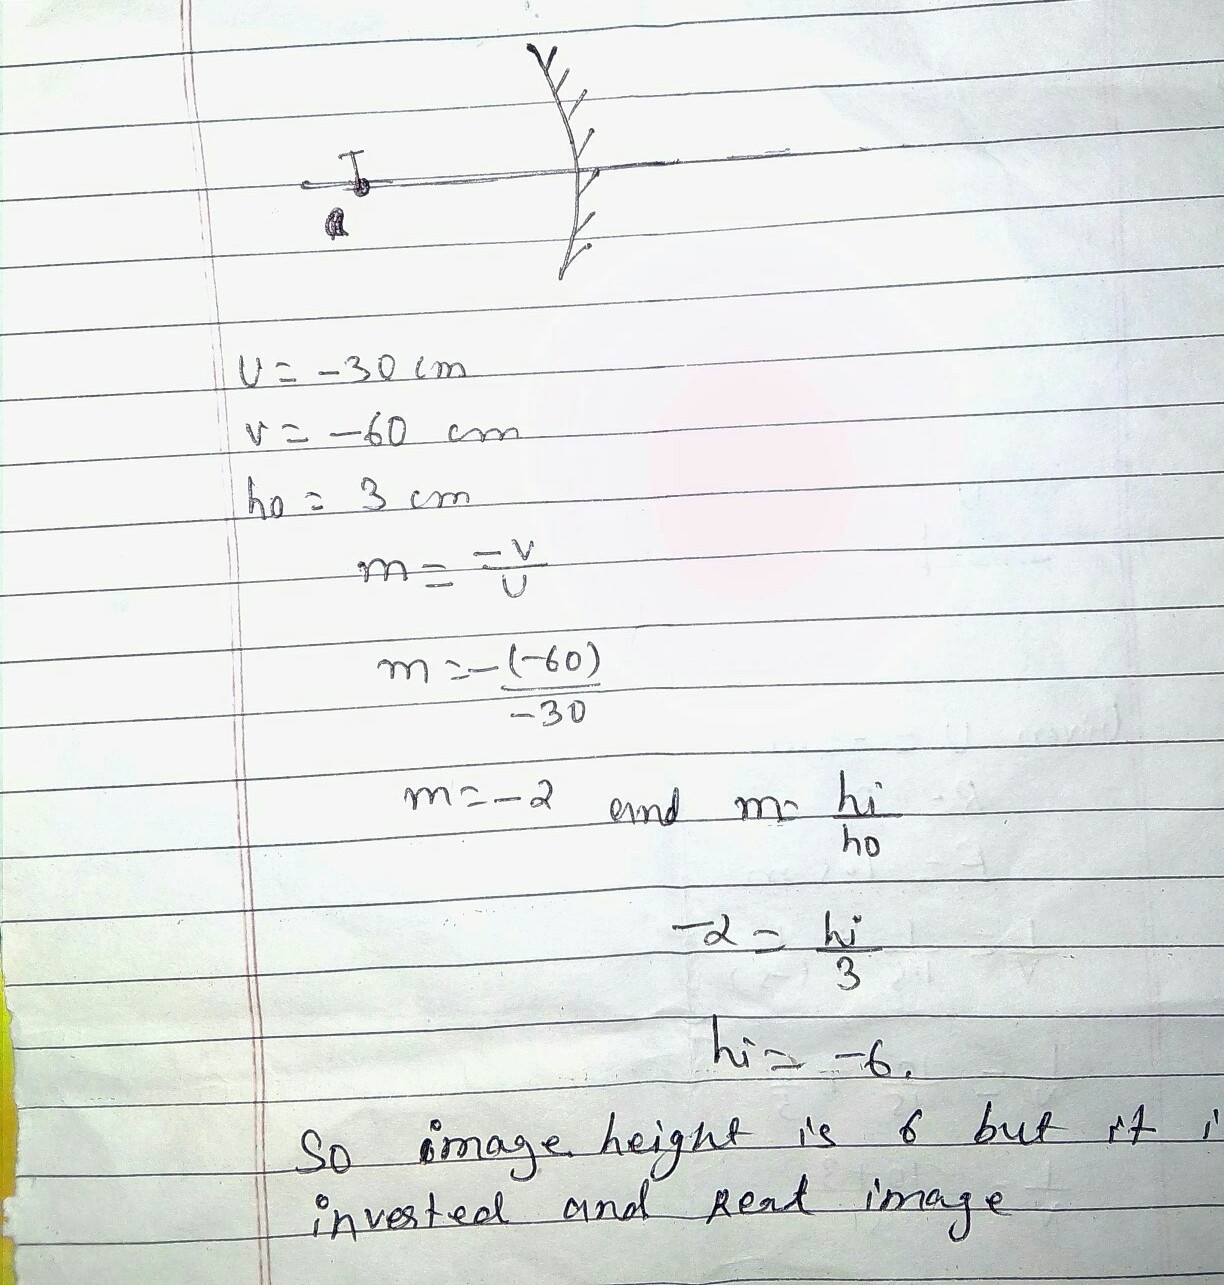 I
U = -30 cm
v = -60 cm
ho = 3 cm
m = -v/U
m = -(-60)/-30
m = -2 and m = hi/ho
-2 = hi/3
hi = -6.
So image height is 6 but it i
inverted and real image